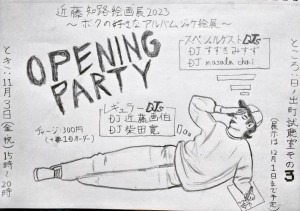 近藤知路絵画展2023
〜ボクの好きなアルバムジャケ絵展〜
OPENING
PARTY
スペシャルゲストDJs
DJ すずきみすず
DJ masala chai
レギュラーDJs
DJ 近藤画伯
DJ 柴田寛
チャージ:300円
(+要1ドリンクオーダー)
とき:11月3日(金・祝)15時〜20時
ところ:日ノ出町試聴室その3
(展示は12月1日まで予定)